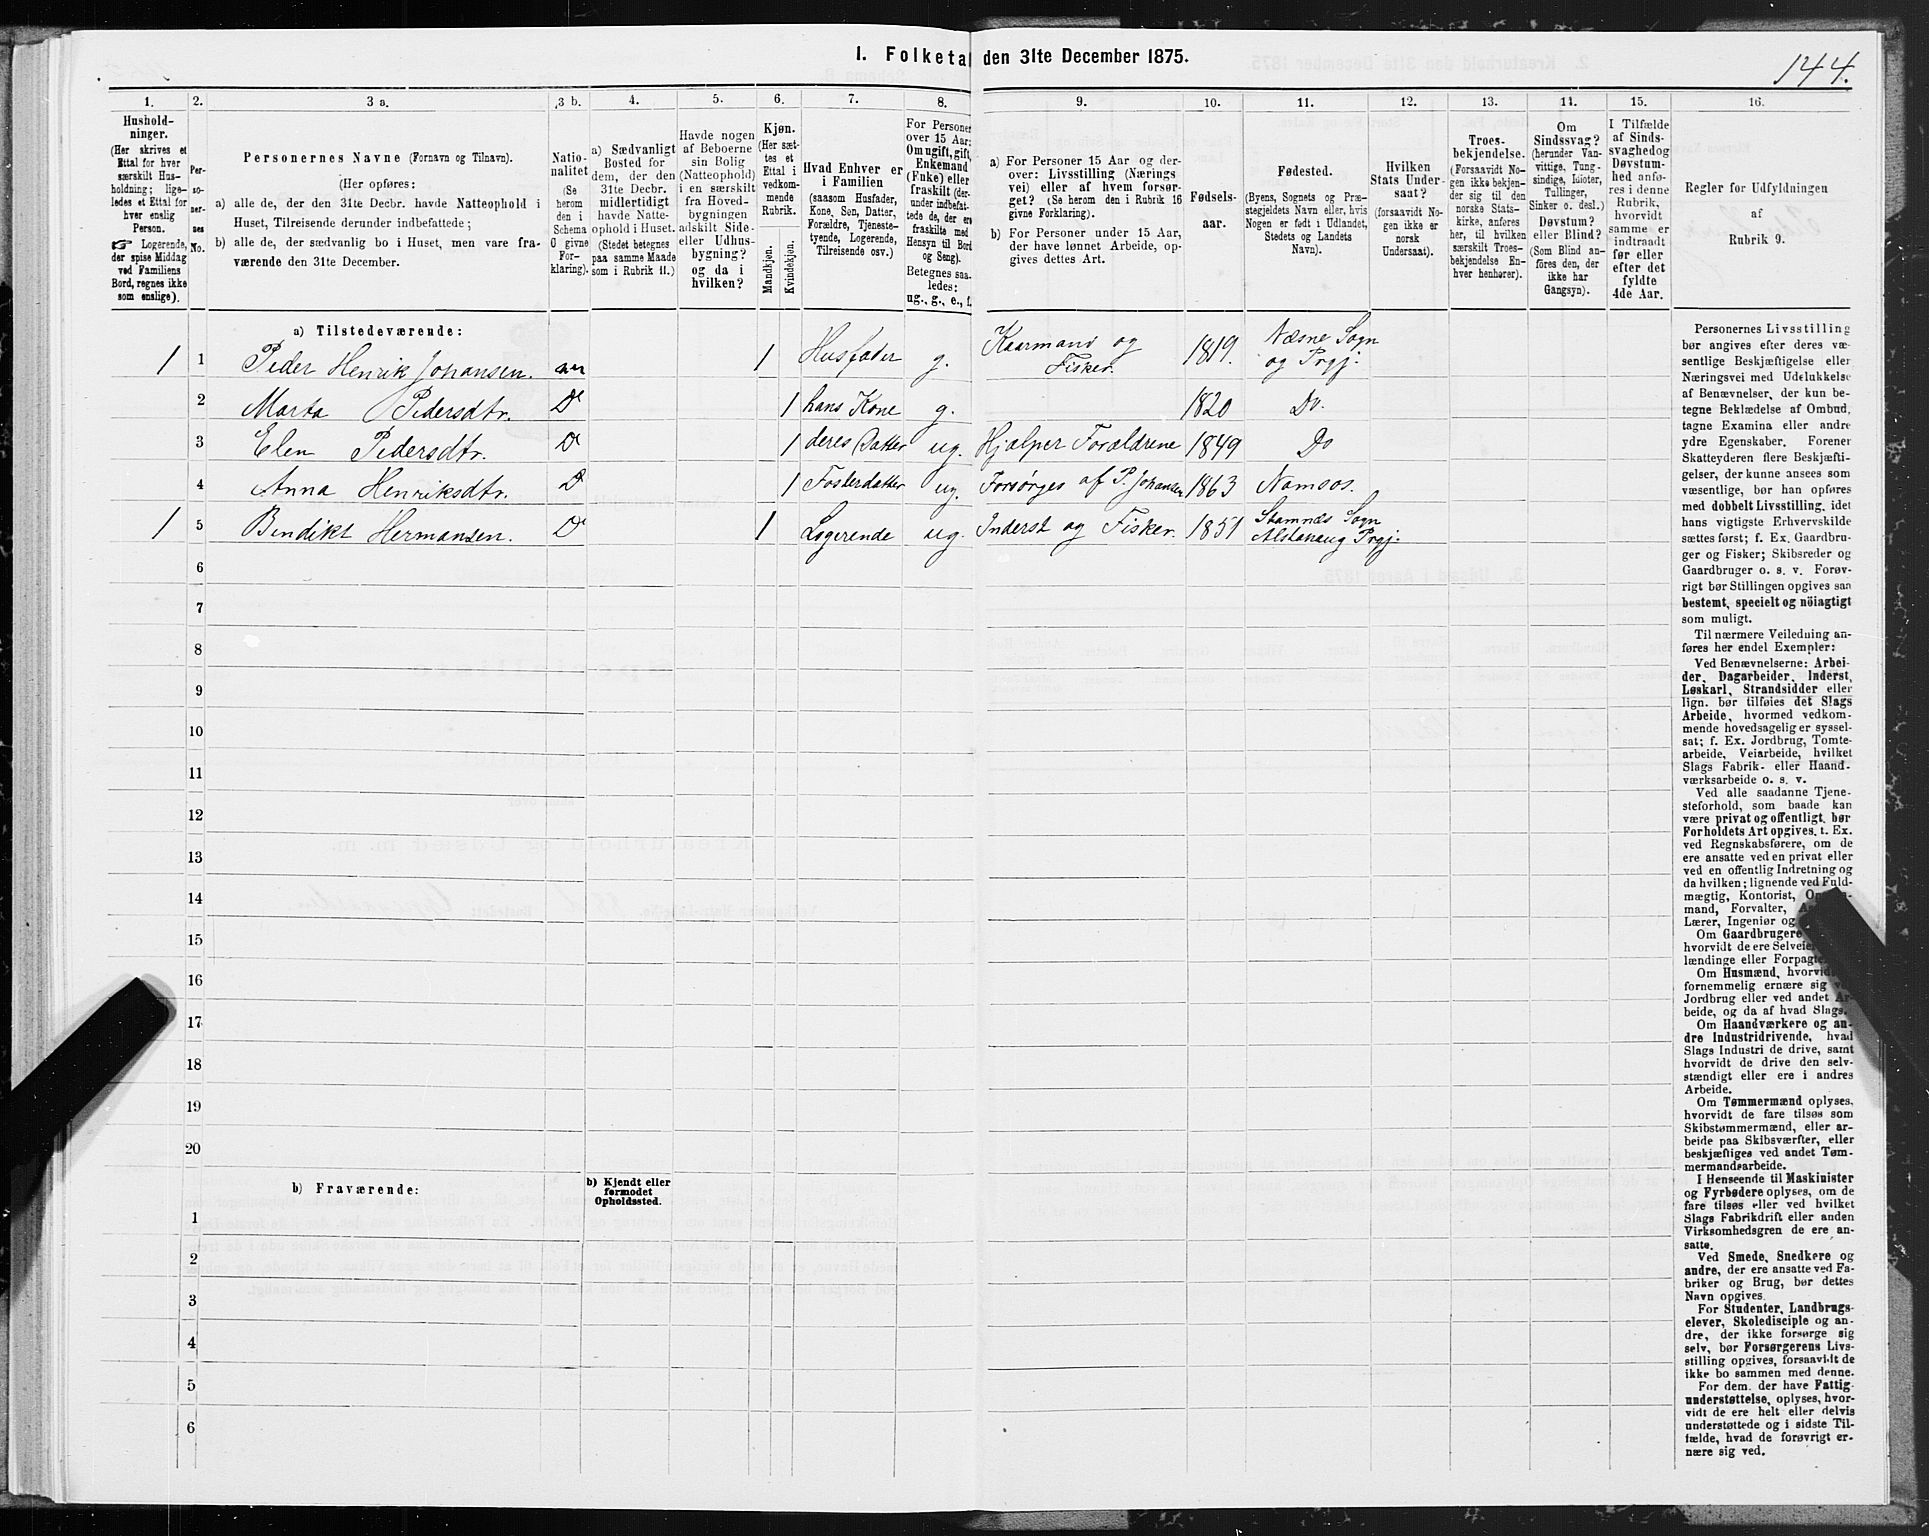 144.
I. Folketal den 31te December 1875.
1.
2.
3 a.
3 b.
4.
5.
6.
7.
8.
9.
10.
11.
12.
13.
14.
15.
16.
Hushold-
ninger.
(Her skrives et
Ettal for hver
særskilt Hus-
holdning; lige-
ledes et Ettal for
hver enslig
Person.
☞ Logerende,
der spise Middag
ved Familiens
Bord, regnes ikke
som enslige).
Per-
so-
ner-
nes
No.
Personernes Navne (Fornavn og Tilnavn).
(Her opføres:
a) alle de, der den 31te Decbr. havde Natteophold i
Huset, Tilreisende derunder indbefattede;
b) alle de, der sædvanlig bo i Huset, men vare fra-
værende den 31te December.
Natio-
nalitet
(Se
herom
den i
Schema
O givne
For-
klaring).
a) Sædvanligt
Bosted for
dem, der den
31te Decbr.
midlertidigt
havde Natte-
ophold i Huset.
(Stedet betegnes
paa samme Maade
som i Rubrik 11.)
Havde nogen
af Beboerne
sin Bolig
(Natteophold)
i en særskilt
fra Hoved-
bygningen
adskilt Side-
eller Udhus-
bygning?
og da i
hvilken?
Kjøn.
(Her sæt-
tes et
Ettal i
vedkom-
mende
Rubrik.
Mandkjøn.
Kvindekjøn.
Hvad Enhver er
i Familien
(saasom Husfader,
Kone, Søn, Datter,
Forældre, Tjeneste-
tyende, Logerende,
Tilreisende osv.)
For Personer
over 15 Aar:
Om ugift, gift,
Enkemand
(Enke) eller
fraskilt (der-
under indbefat-
tede de, der ere
fraskilte med
Hensyn til Bord
og Seng).
Betegnes saa-
ledes:
ug., g., e., f.
a) For Personer 15 Aar og der-
over: Livsstilling (Nærings
vei) eller af hvem forsør-
get? (Se herom den i Rubrik 16
givne Forklaring).
b) For Personer under 15 Aar,
der have lønnet Arbeide, op-
gives dettes Art.
Fødsels-
aar.
Fødested.
(Byens, Sognets og Præ-
stegjeldets Navn eller, hvis
Nogen er født i Udlandet,
Stedets og Landets
Navn).
Hvilken
Stats Under-
saat?
(forsaavidt No-
gen ikke er
norsk
Undersaat).
Troes-
bekjendelse.
(Forsaavidt No-
gen ikke bekjen-
der sig til den
norske Stats-
kirke, anføres
her, til hvilken
særskilt Troes-
bekjendelse En-
hver henhører).
Om
Sindssvag?
(herunder Van-
vittige, Tung-
sindige, Idioter,
Tullinger,
Sinker o. desl.)
Døvstum?
eller Blind?
(Som Blind an-
føres den, der
ikke har
Gangsyn).
I Tilfælde
af Sinds-
svaghed og
Døvstum-
hed anfø-
res i denne
Rubrik,
hvorvidt
samme er
indtraadt
før eller
efter det
fyldte
4de Aar.
Regler for Udfyldningen
af
Rubrik 9.
a) Tilstedeværende:
1 1 Peder Henrik Johansen. nn 1 Husfader g. Kaarmand og Fisker. 1819. Næsne Sogn og Prgj.
2 Marta Pedersdtr. Do 1 hans Kone g. 1820 Do.
3 Elen Pedersdtr. Do 1 deres Datter ug. Hjælper Forældrene 1849 Do
4 Anna Henriksdtr. Do 1 Fosterdatter ug. Forsørges af P. Johansen 1863 Namsos.
1 5 Bendikt Hermansen. Do 1 Logerende ug. Inderst og Fisker. 1851 Stamnæs Sogn Alstahaug Prgj.
6
7
8
9
10
11
12
13
14
15
16
17
18
19
20
b) Fraværende:
b) Kjendt eller
formodet
Opholdssted.
1
2
3
4
5
6
Personernes Livsstilling
bør angives efter deres væ-
sentlige Beskjæftigelse eller
Næringsvei med Udelukkelse
af Benævnelser, der kun be-
tegne Beklædelse af Ombud,
tagne Examina eller andre
ydre Egenskaber. Forener
Skatteyderen flere Beskjæfti-
gelser, der kunne ansees som
væsentlige, bør han opføres
med dobbelt Livsstilling, idet
hans vigtigste Erhvervskilde
sættes først; f. Ex. Gaardbru-
ger og Fisker; Skibsreder og
Gaardbruger o. s. v. Forøv-
rigt bør Stillingen opgives saa
bestemt, specielt og nöiagtigt
som muligt.
Til nærmere Veiledning an-
føres her endel Exempler:
Ved Benævnelserne: Arbei-
der, Dagarbeider, Inderst,
Løskarl, Strandsidder eller
lign. bør tilføies det Slags
Arbeide, hvormed vedkom-
mende hovedsagelig er syssel-
sat; f. Ex. Jordbrug, Tomte-
arbeide, Veiarbeide, hvilket
Slags Fabrik- eller Haand-
værksarbeide o. s. v.
Ved alle saadanne Tjene-
steforhold, som baade kan
være privat og offentligt, bør
Forholdets Art opgives, t. Ex.
ved Regnskabsførere, om de
ere ansatte ved en privat eller
ved en offentlig Indretning og
da hvilken; lignende ved Fuld-
mægtig, Kontorist,
mand, Forvalter,
Lærer, Ingeniør og
Om Gaardbrugere
hvorvidt de ere
lændinge eller
Om Husmænd,
fornemmelig ernære sig
Jordbrug eller ved andet Ar-
beide, og da af hvad Slags.
Om Haandværkere og an-
dre Industridrivende, hvad
Slags Industri de drive, samt
hvorvidt de drive den selv-
stændigt eller ere i andres
Arbeide.
Om Tømmermænd oplyses,
hvorvidt de fare tilsøs som
Skibstømmermænd, eller ar-
beide paa Skibsværfter, eller
beskjæftiges ved andet Tøm-
mermandsarbeide.
I Henseende til Maskinister
og Fyrbødere oplyses, om de
fare tilsøs eller ved hvilket
Slags Fabrikdrift eller anden
Virksomhedsgren de ere an-
satte.
Ved Smede, Snedkere og
andre, der ere ansatte ved Fa-
briker og Brug, bør dettes
Navn opgives.
For Studenter, Landbrugs-
elever, Skoledisciple og an-
dre, der ikke forsørge sig
selv, bør Forsørgerens Livs-
stilling opgives, forsaavidt de
ikke bo sammen med denne.
For dem, der have Fattig-
understøttelse, oplyses, hvor-
vidt de ere helt eller delvis
understøttede og i sidste Til-
fælde, hvad de forøvrigt er-
nære sig ved.